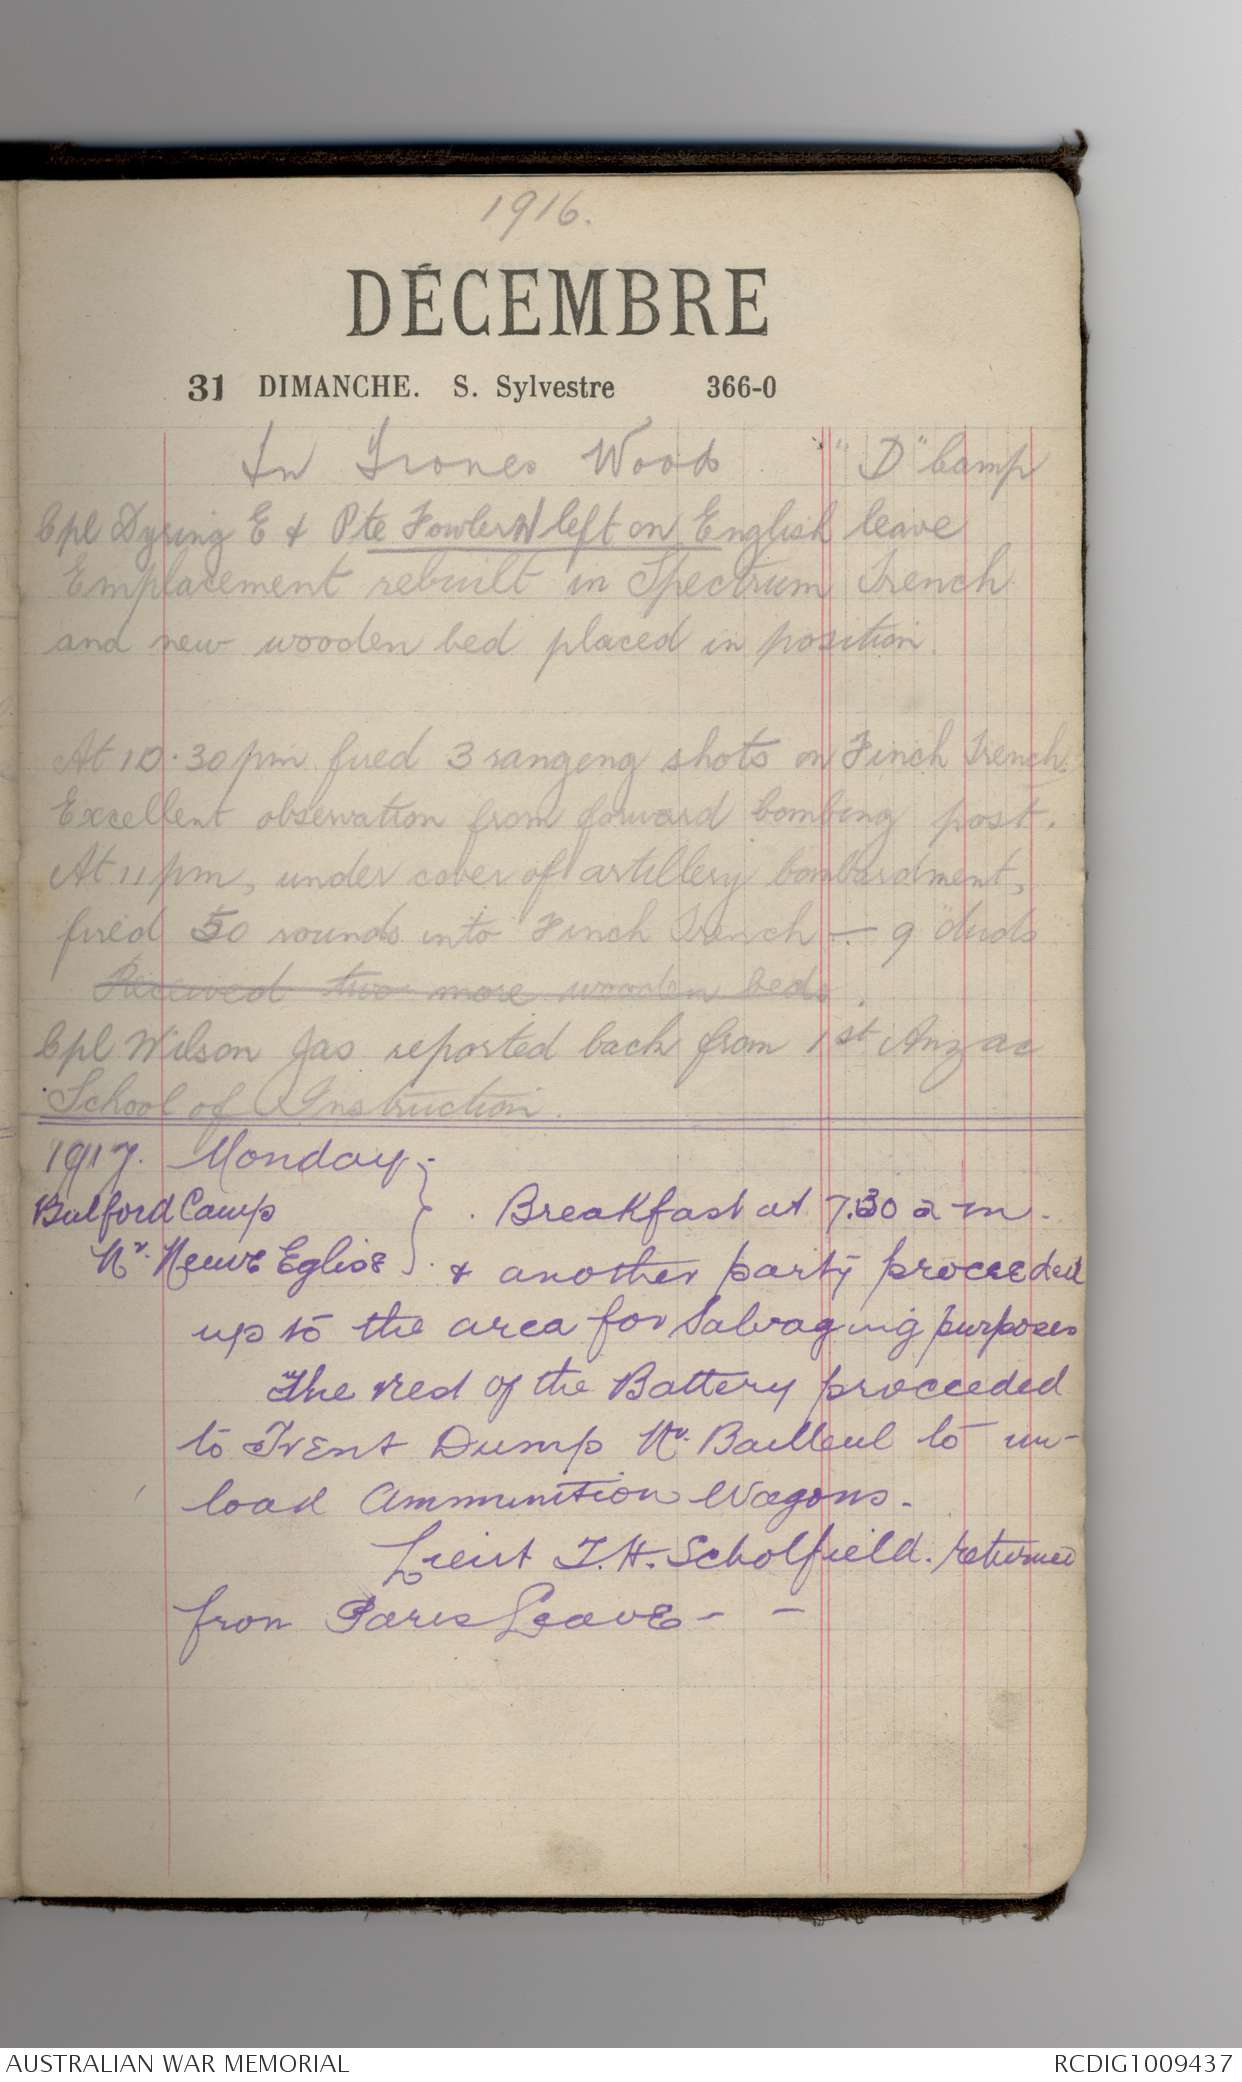 1916.
DÉCEMBRE
31 DIMANCHE. S. Sylvestre 366-0
In Trones Wood "D" Camp
Cpl Dyring E & Pte Fowler W left on English leave
Emplacement rebuilt in Spectrum Trench
and new wooden bed placed in position.
At 10.30 pm fired 3 ranging shots on Finch Trench.
Excellent observation from forward bombing post.
At 11 pm, under cover of artillery bombardment,
fired 50 rounds into Finch Trench — 9 "duds"
Received two more wooden beds.
Cpl Wilson Jas reported back from 1st Anzac
School of Instruction.
1917. Monday -
Bulford Camp } . Breakfast at 7.30 a m.
Nr. Neuve Eglise } & another party proceeded
up to the area for Salvaging purposes
The rest of the Battery proceeded
to Trent Dump Nr. Bailleul to un-
load Ammunition Wagons.
Lieut T. H. Scholfield. returned
from Paris Leave - -
AUSTRALIAN WAR MEMORIAL RCDIG1009437